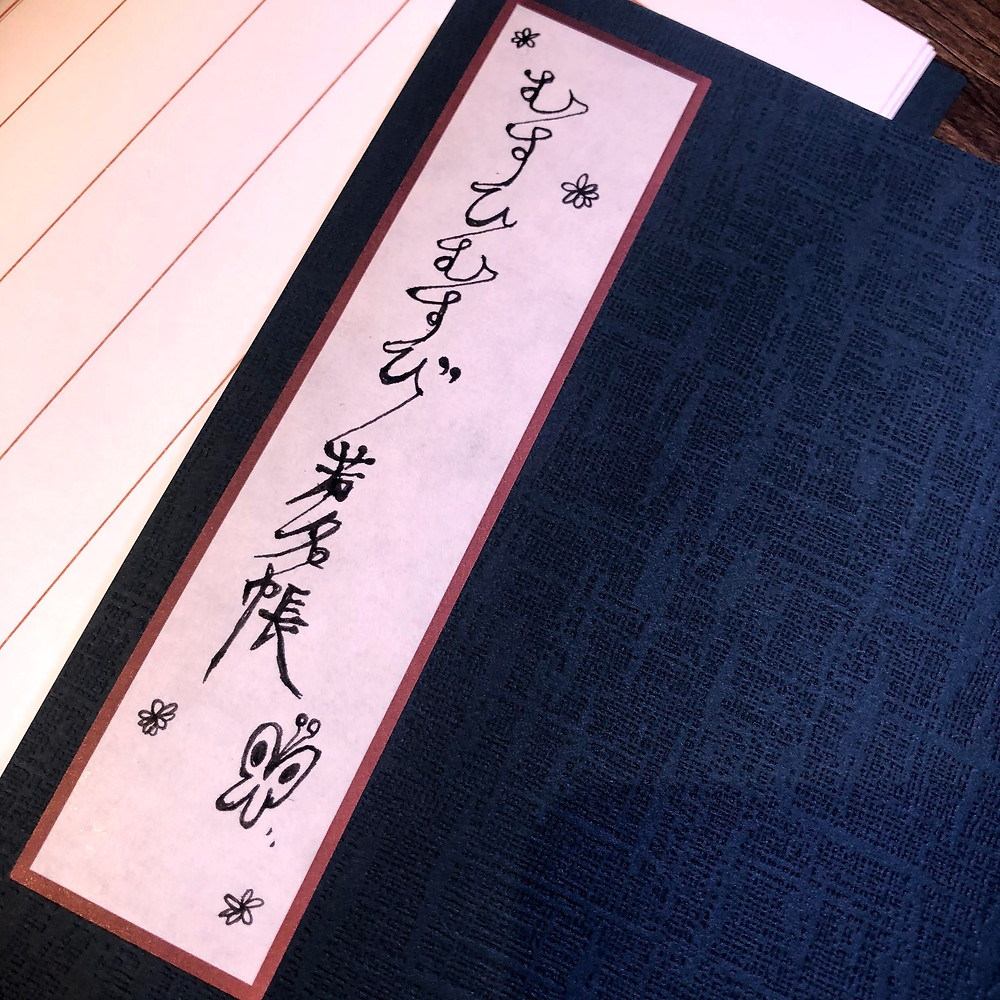 むすひむすび若名帳